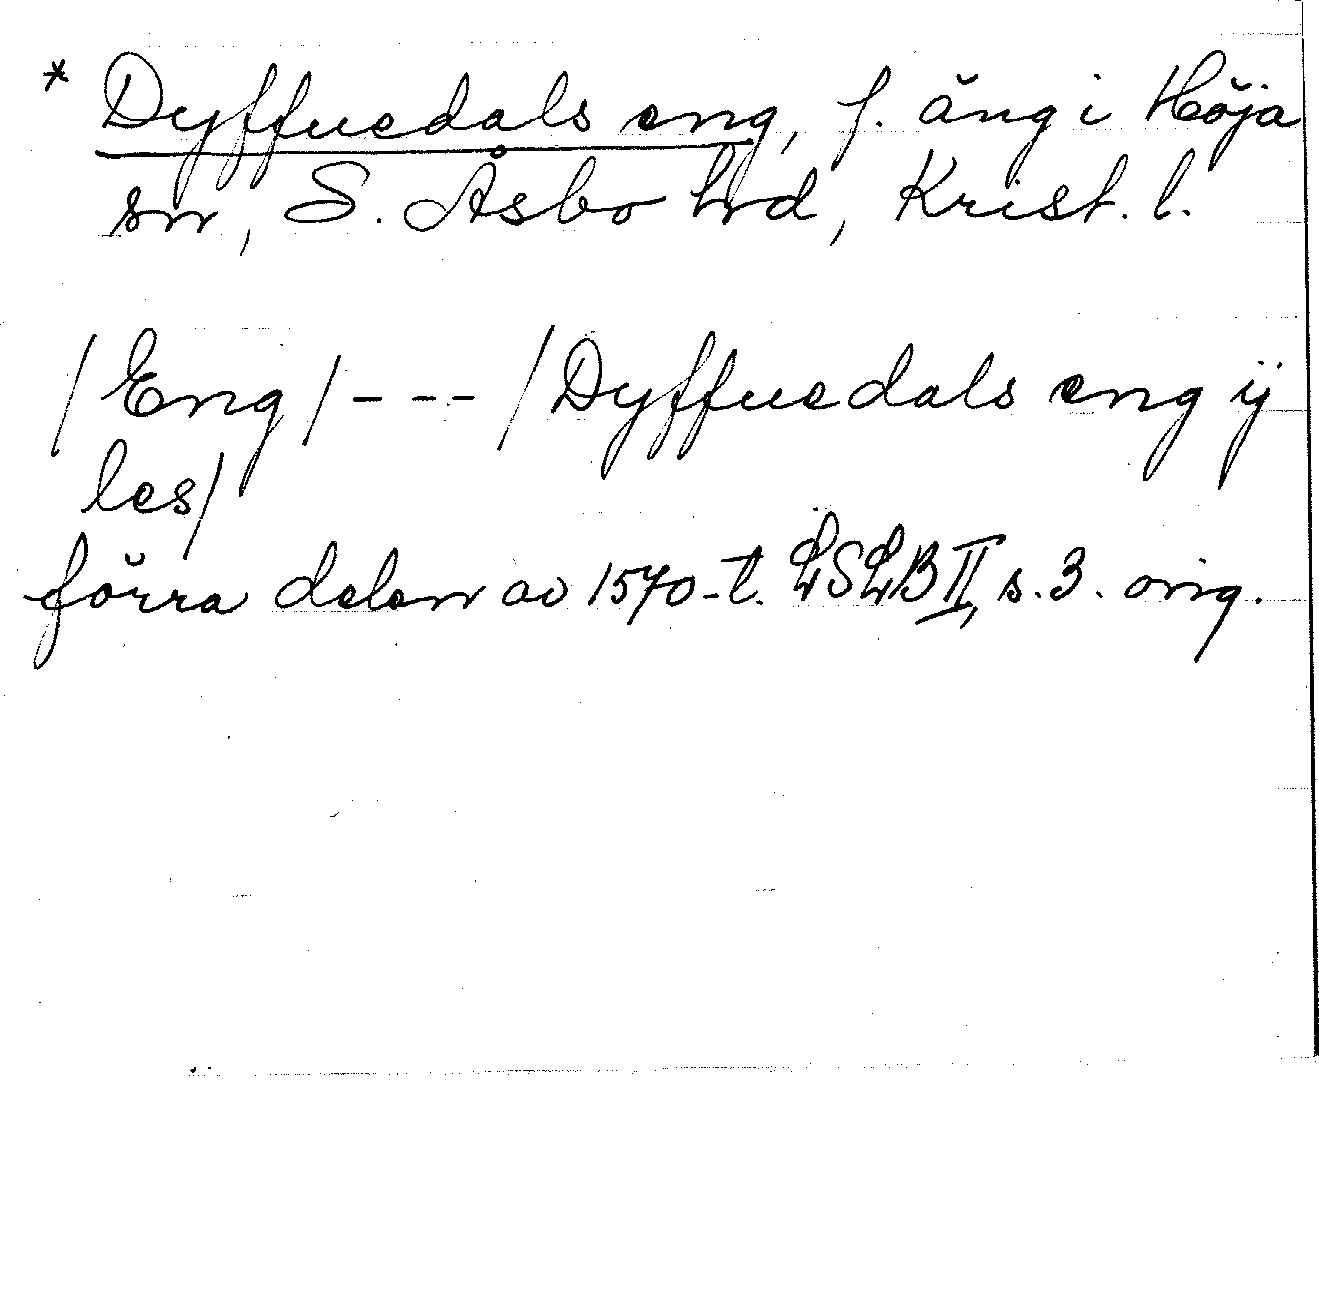 * Dyffuedals eng, f. äng i Höja
sn, S. Åsbo hd, Krist. l.
/Eng/ - - - /Dyffuedals eng ij
les/
förra delen av 1570-t. LSLB II, s. 3. orig.